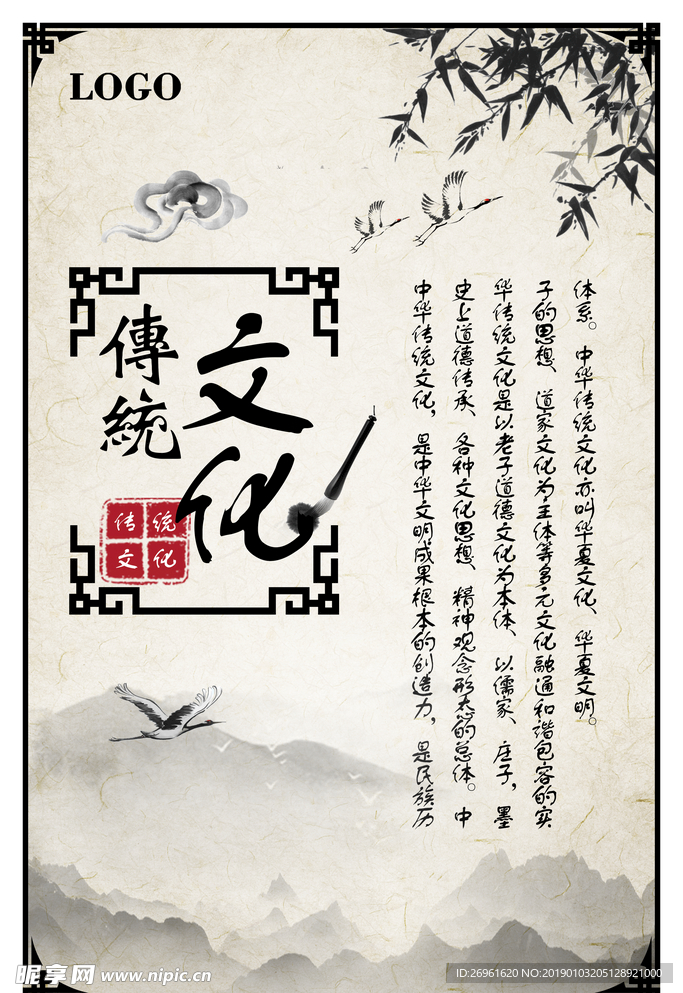 LOGO
傳統
文化
传统
文化
中华传统文化，是中华文明成果根本的创造力，是民族历
史上道德传承、各种文化思想、精神观念形态的总体。中
华传统文化是以老子道德文化为本体、以儒家、庄子，墨
子的思想、道家文化为主体等多元文化融通和谐包容的实
体系。中华传统文化亦叫华夏文化、华夏文明。
昵享网 www.nipic.cn
ID:26961620 NO:20190103205128921000